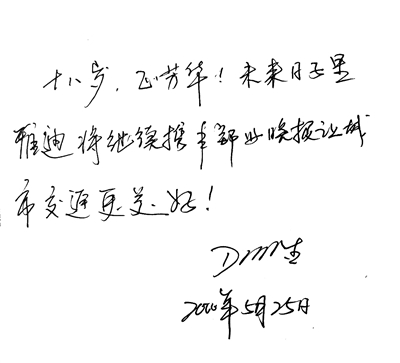 十八岁，正芳华！未来日子里
雅迪将继续携手都市晚报让城
市交通更美好！
2020年5月25日